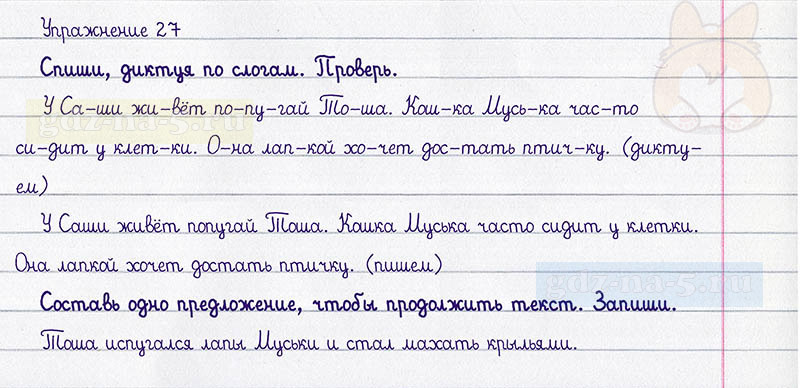 Упражнение 27
Спиши, диктуя по слогам. Проверь.
У Са-ши жи-вёт по-пу-гай То-ша. Кош-ка Мусь-ка час-то
си-дит у клет-ки. О-на лап-кой хо-чет дос-тать птич-ку. (дикту-
ем)
У Саши живёт попугай Тоша. Кошка Муська часто сидит у клетки.
Она лапкой хочет достать птичку. (пишем)
Составь одно предложение, чтобы продолжить текст. Запиши.
Тоша испугался лапы Муськи и стал махать крыльями.
gdz-na-5.ru
gdz-na-5.ru